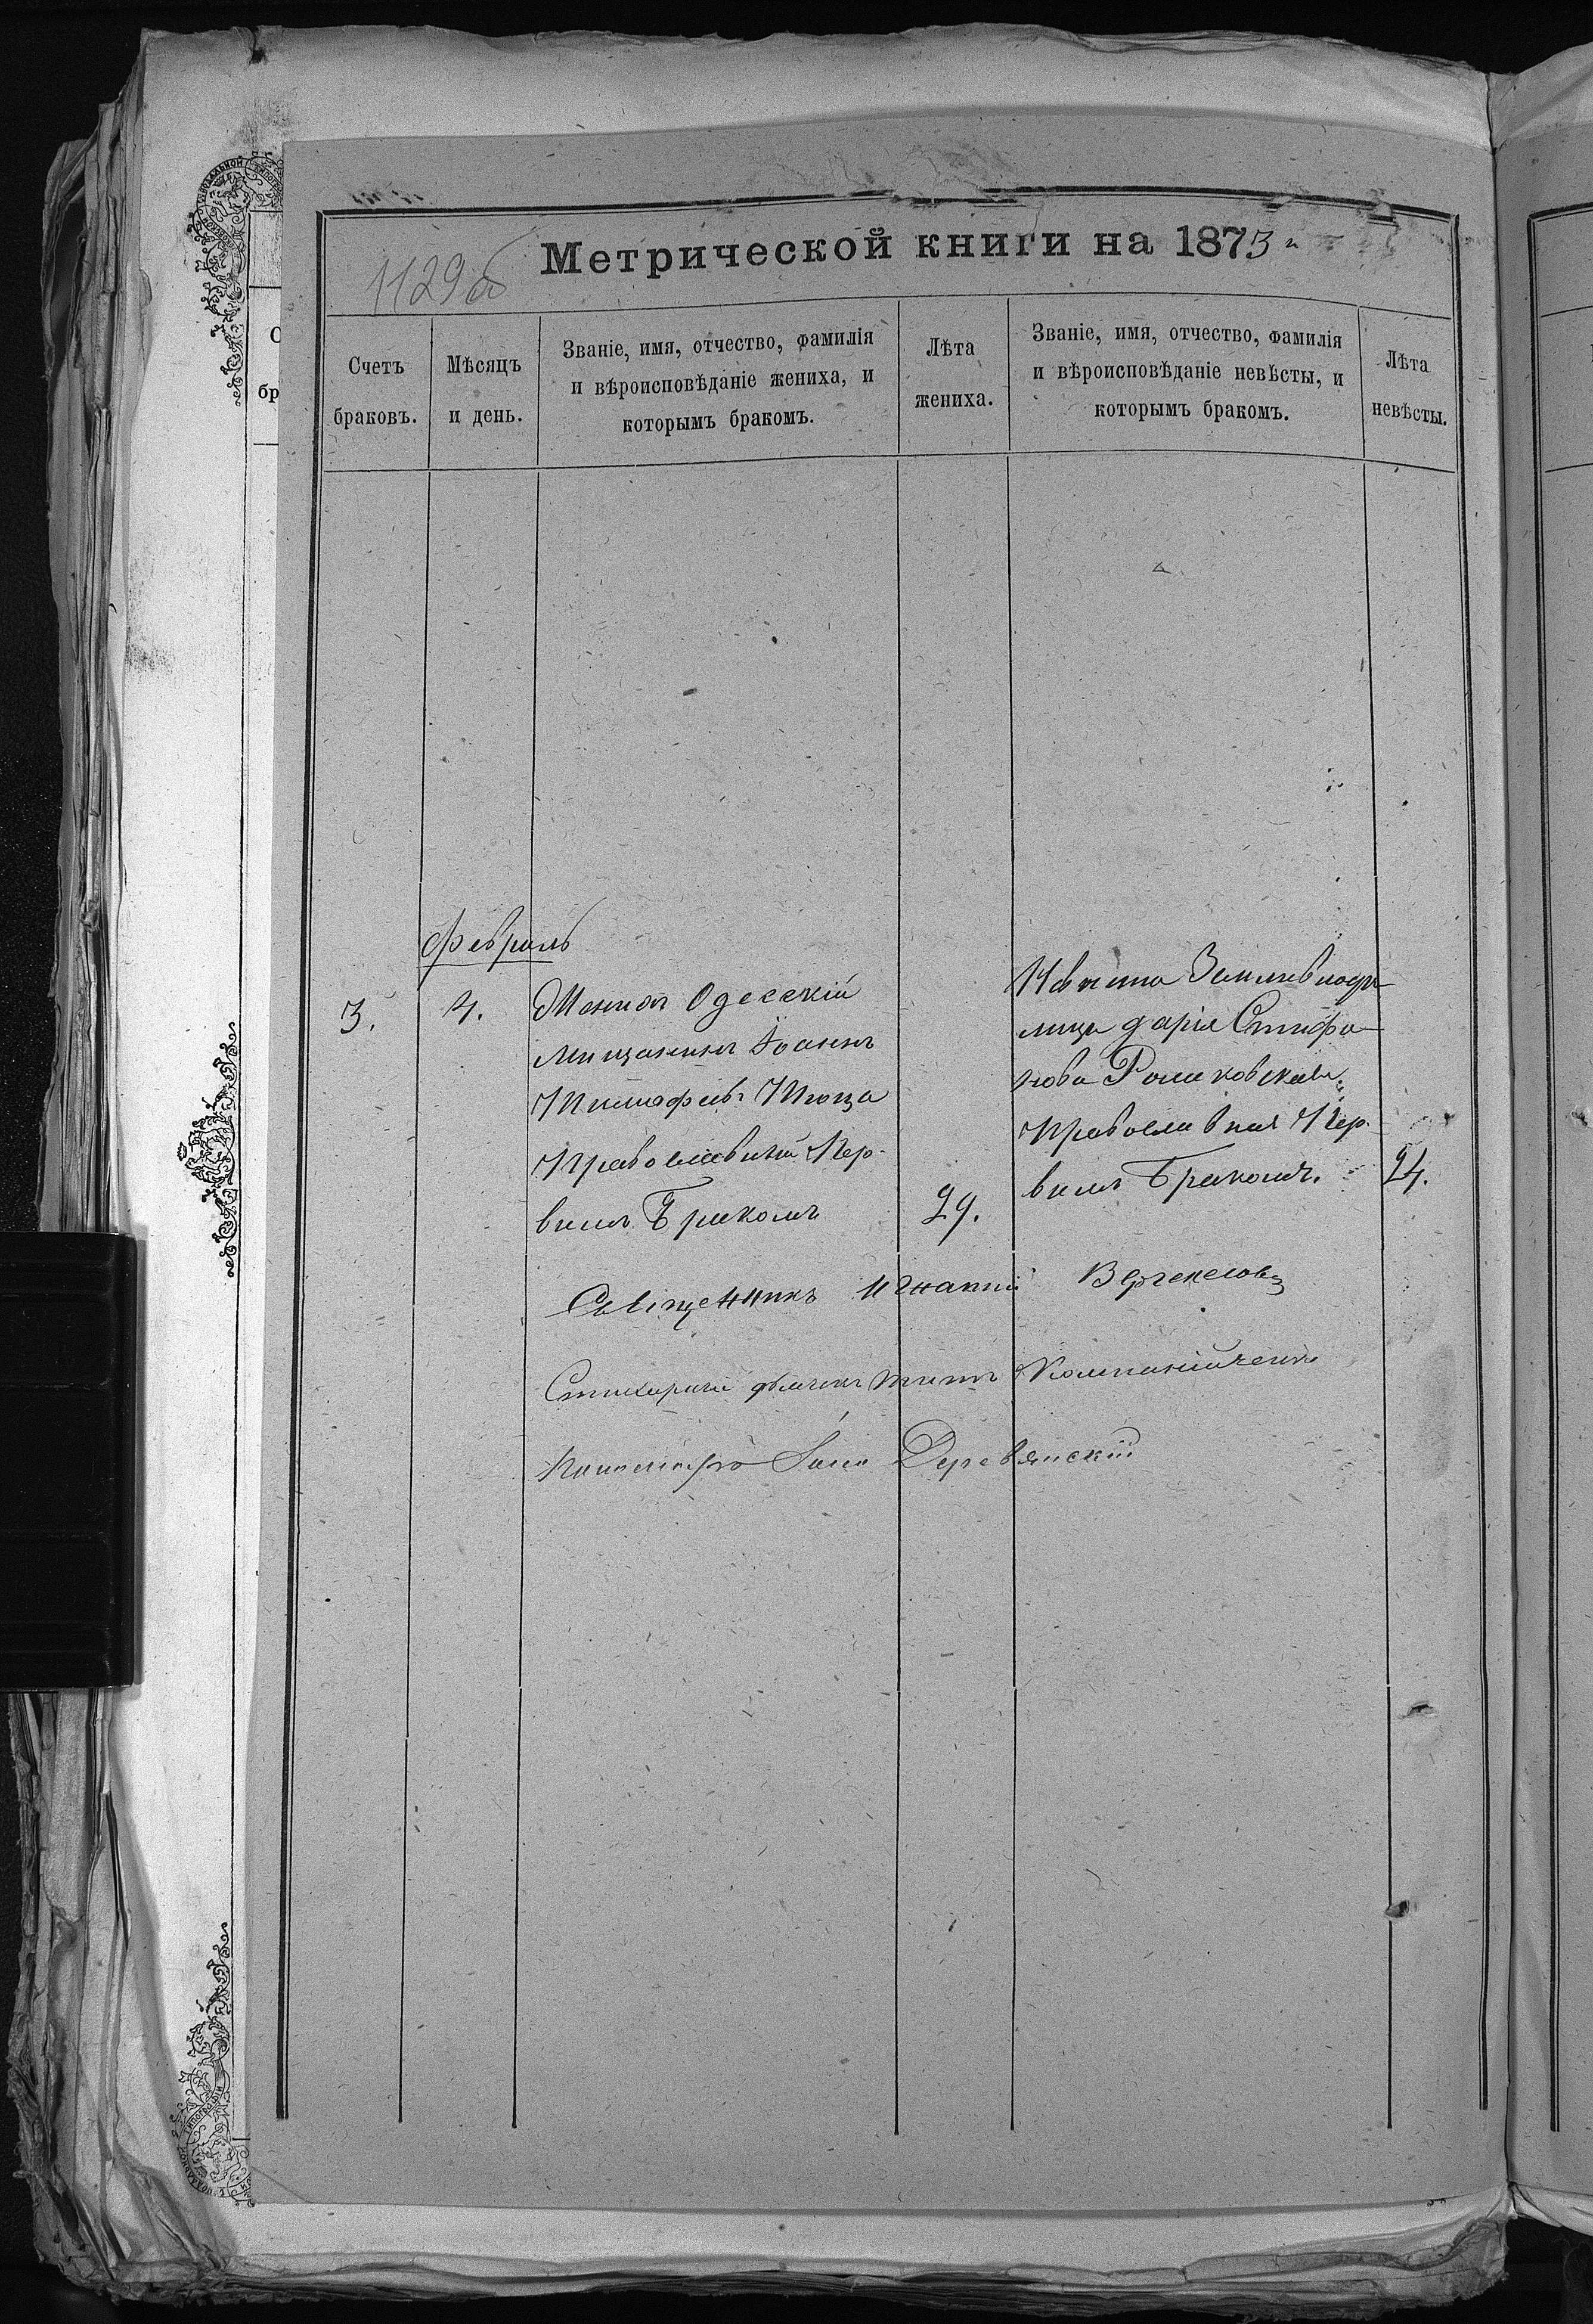 1129об
Метрической книги на 1873 г
Счетъ браковъ.
Мѣсяцъ и день.
Званіе, имя, отчество, фамилія и вѣроисповѣданіе жениха, и которымъ бракомъ.
Лѣта жениха.
Званіе, имя, отчество, фамилія и вѣроисповѣданіе невѣсты, и которымъ бракомъ.
Лѣта невѣсты.
Февраль
3.
4.
Женихъ Одесскій
Мищанинъ Іоаннъ
Тимофеев.
Православный Пер-
вымъ Бракомъ
29.
Невѣста
дарія Стифа-
нова Романовская
Православная Пер-
вымъ Бракомъ.
24.
Священникъ Игнатій
Стихарный
Пономарь Деревянскій